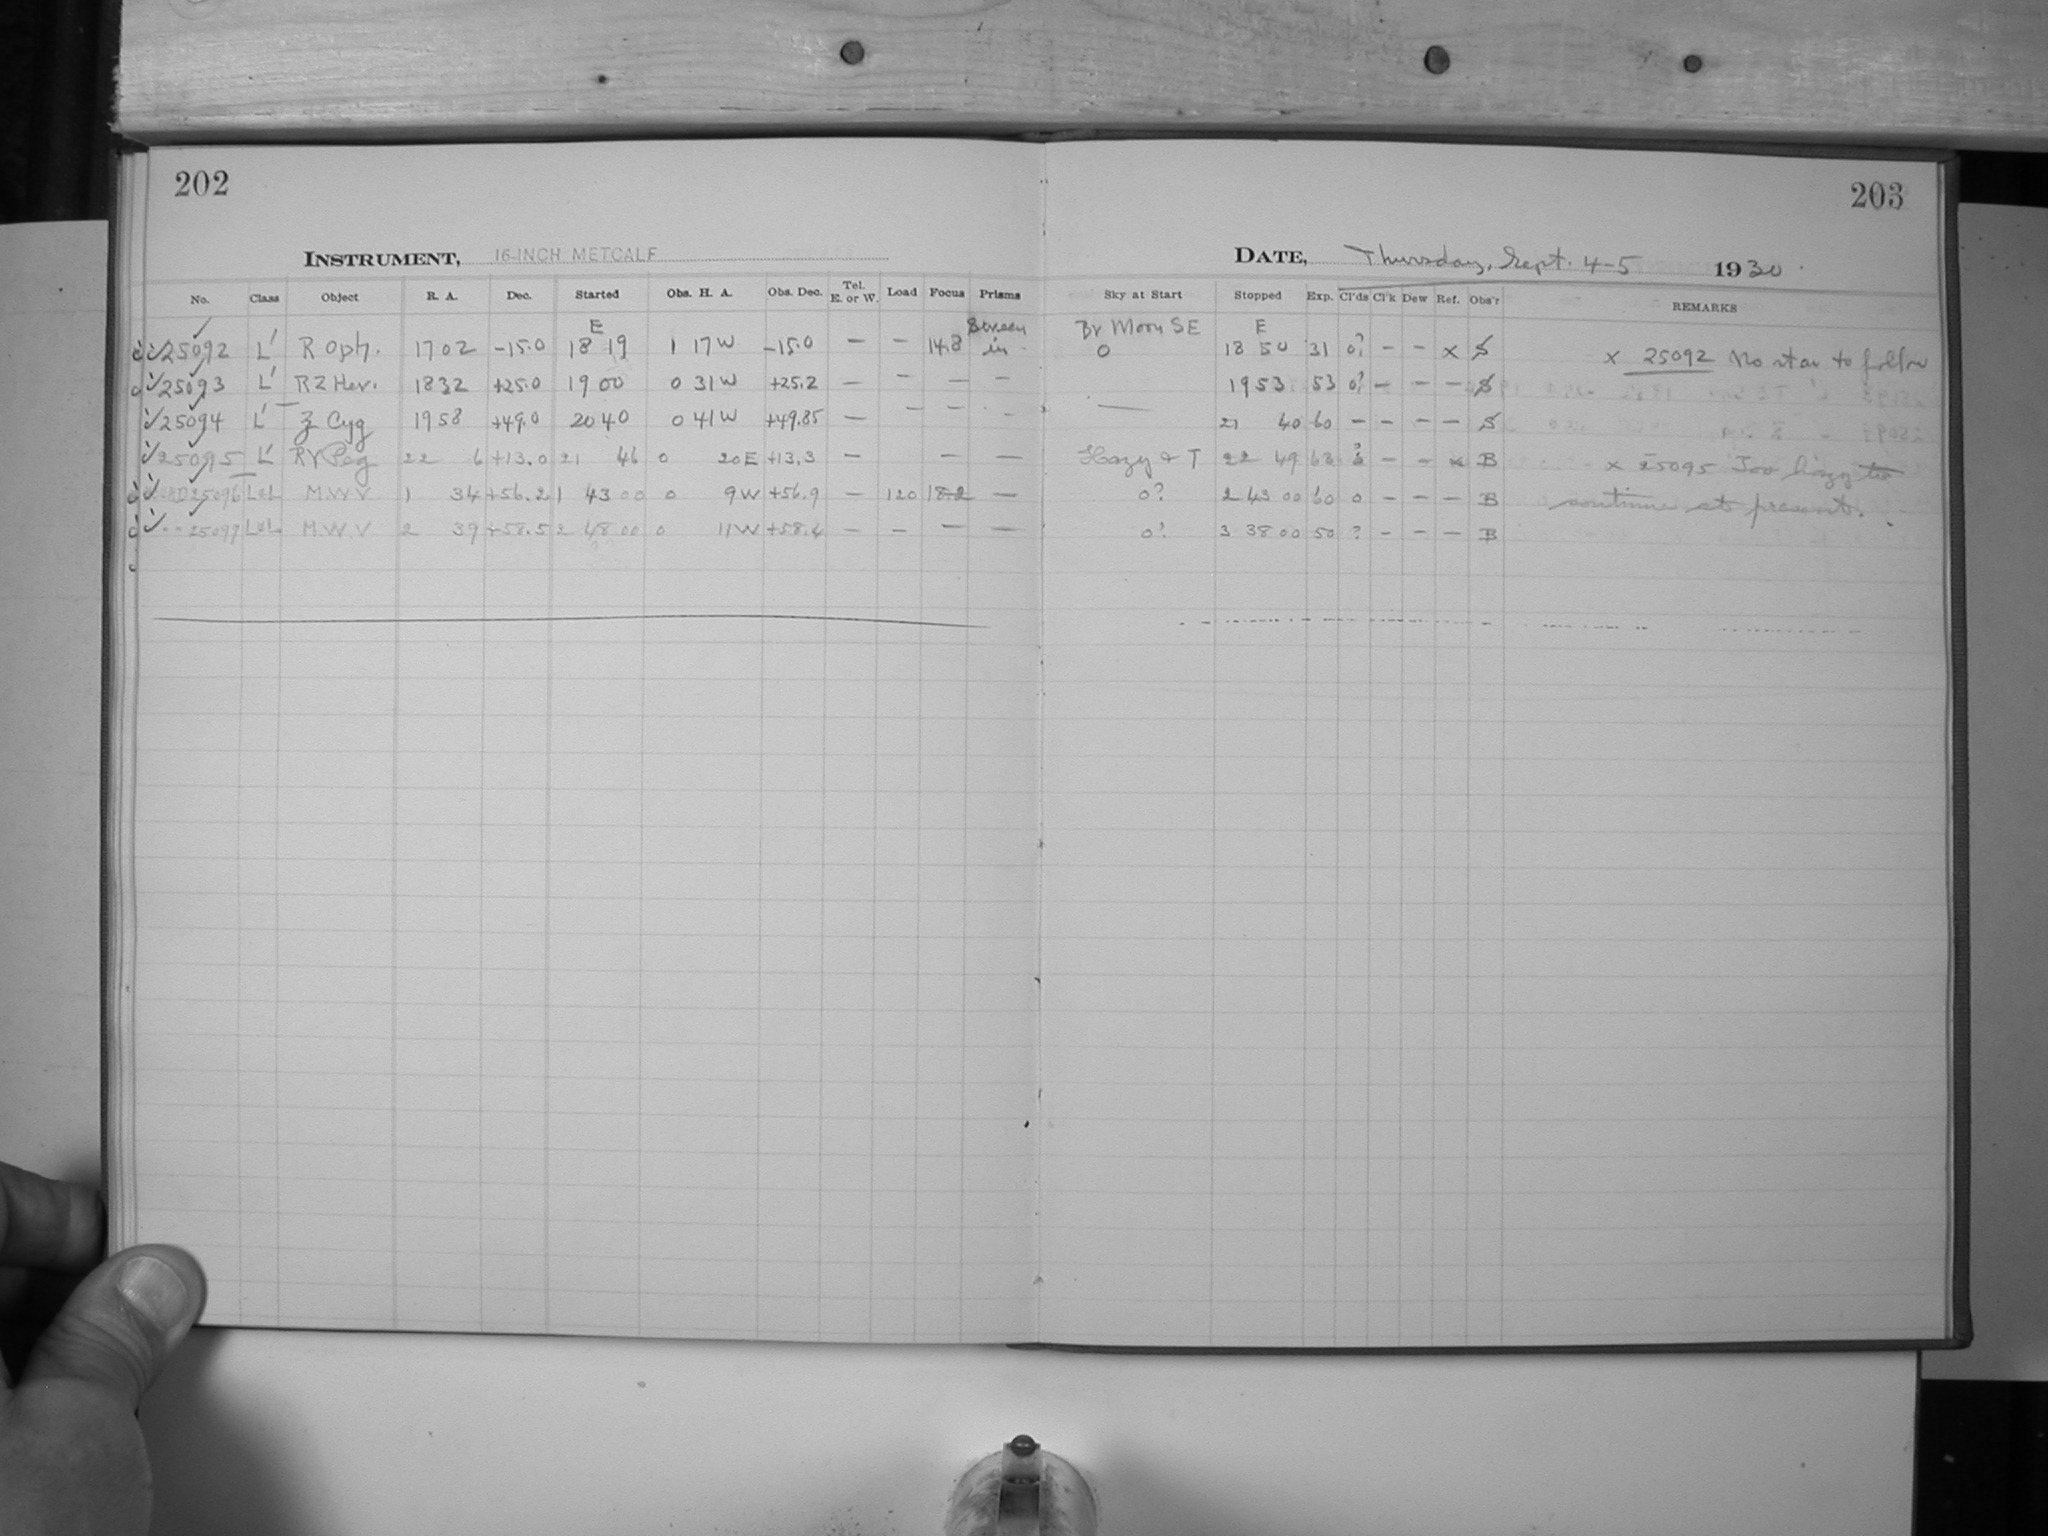 202
203
INSTRUMENT, 16-INCH METCALF
DATE, Thursday, Sept. 4-5 1930.
No. Class Object R. A. Dec. Started Obs. H. A. Obs. Dec. Tel. E. or W. Load Focus Prisms Sky at Start Stopped Exp. Cl'ds Cl'k Dew Ref. Obs'r REMARKS
E Screen Br Moon SE E
✓25092 L' R Oph. 1702 -15.0 18 19 1 17W -15.0 — — 14.8 in 0 18 50 31 0? - - x S x 25092 No star to follow
✓25093 L' RZ Her. 1832 +25.0 1900 0 31W +25.2 — — — — 1953 53 0? - - - S
✓25094 L' Z Cyg 1958 +49.0 2040 0 41W +49.85 — — — — — 21 40 60 - - - - S
✓25095 L' RV Peg 22 6 +13.0 21 46 0 20E +13.3 — — — Hazy & T 22 49 63 - - x B x 25095 Too hazy to
✓25096 L&L M.W.V 1 34 +56.2 1 43 00 0 9W +56.9 — 120 18.2 — 0? 2 43 00 60 0 - - - B continue at present.
✓25097 L&L M.W.V 2 39 +58.5 2 48 00 0 11W +58.4 — — — — 0? 3 38 00 50 ? - - - B